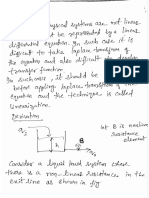 physical systems are not linear
not be represented by a linear
differential equation. In such case it is
difficult to take laplace transform of
the system and also difficult to develop
transfer function
In such case, it should be
before applying laplace transform of the
equation and the technique is called
Linearisation.
Derivation
let B is nonlinear
resistance
element
h
B
Consider a liquid tank system where
there is a non-linear resistance in the
exit line as shown in fig